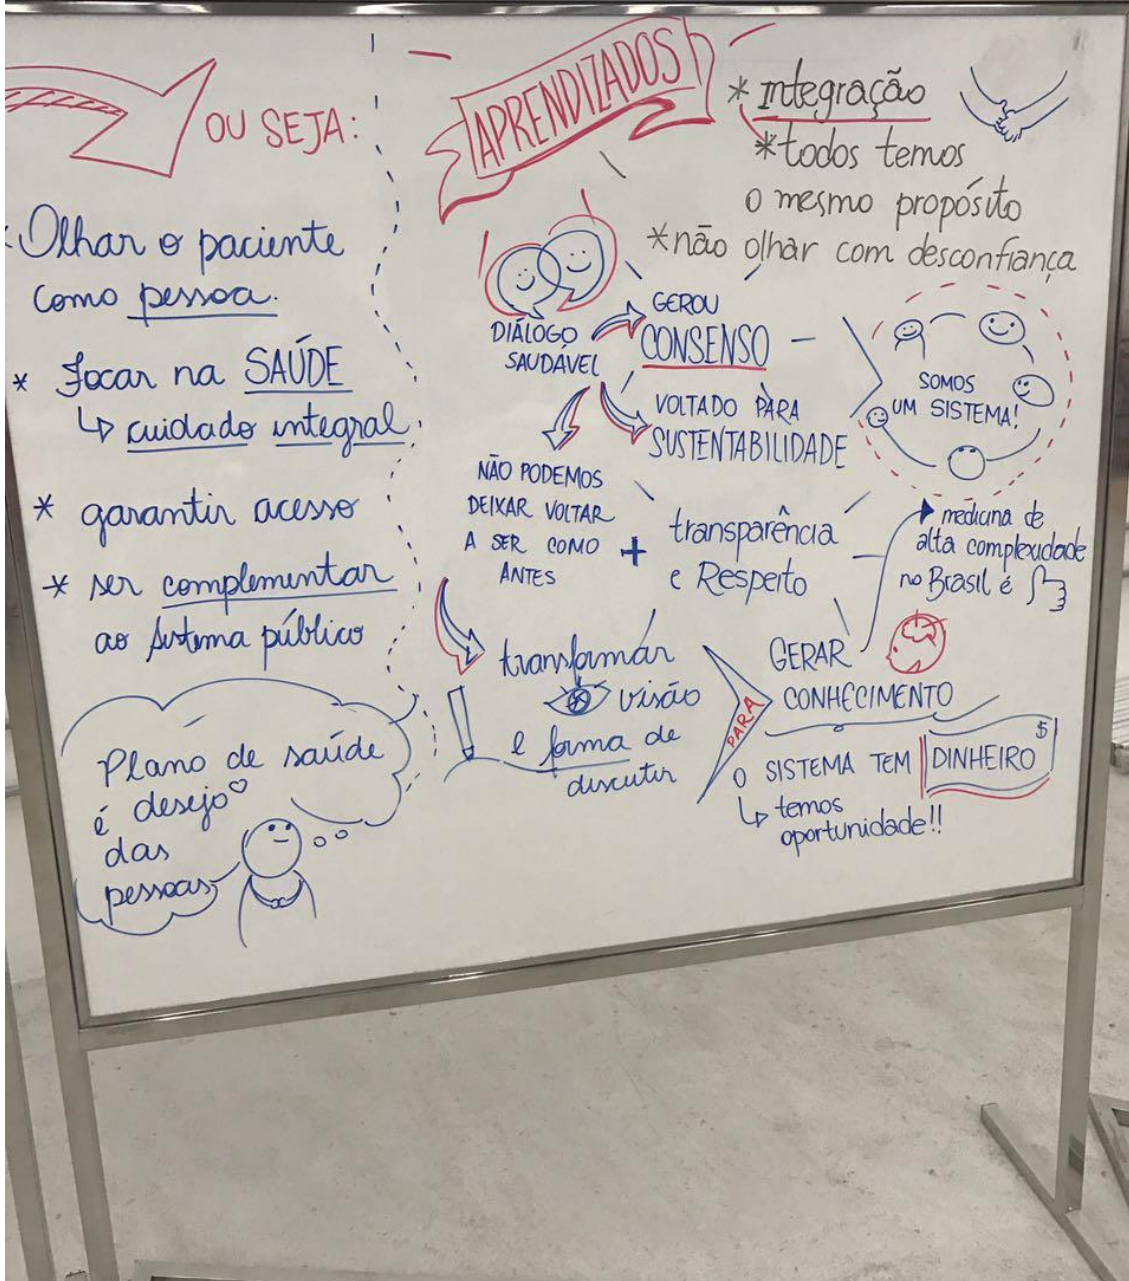 OU SEJA:
* Olhar o paciente
como pessoa.
* Focar na SAÚDE
↳ cuidado integral
* garantir acesso
* ser complementar
ao sistema público
Plano de saúde
é desejo
das
pessoas
APRENDIZADOS
* Integração
* todos temos
o mesmo propósito
* não olhar com desconfiança
DIÁLOGO
SAUDÁVEL
GEROU
CONSENSO
VOLTADO PARA
SUSTENTABILIDADE
SOMOS
UM SISTEMA!
NÃO PODEMOS
DEIXAR VOLTAR
A SER COMO
ANTES
+
transparência
e Respeito
medicina de
alta complexidade
no Brasil é
transformar
visão
e forma de
discutir
PARA
GERAR
CONHECIMENTO
O SISTEMA TEM DINHEIRO $
↳ temos
oportunidade!!